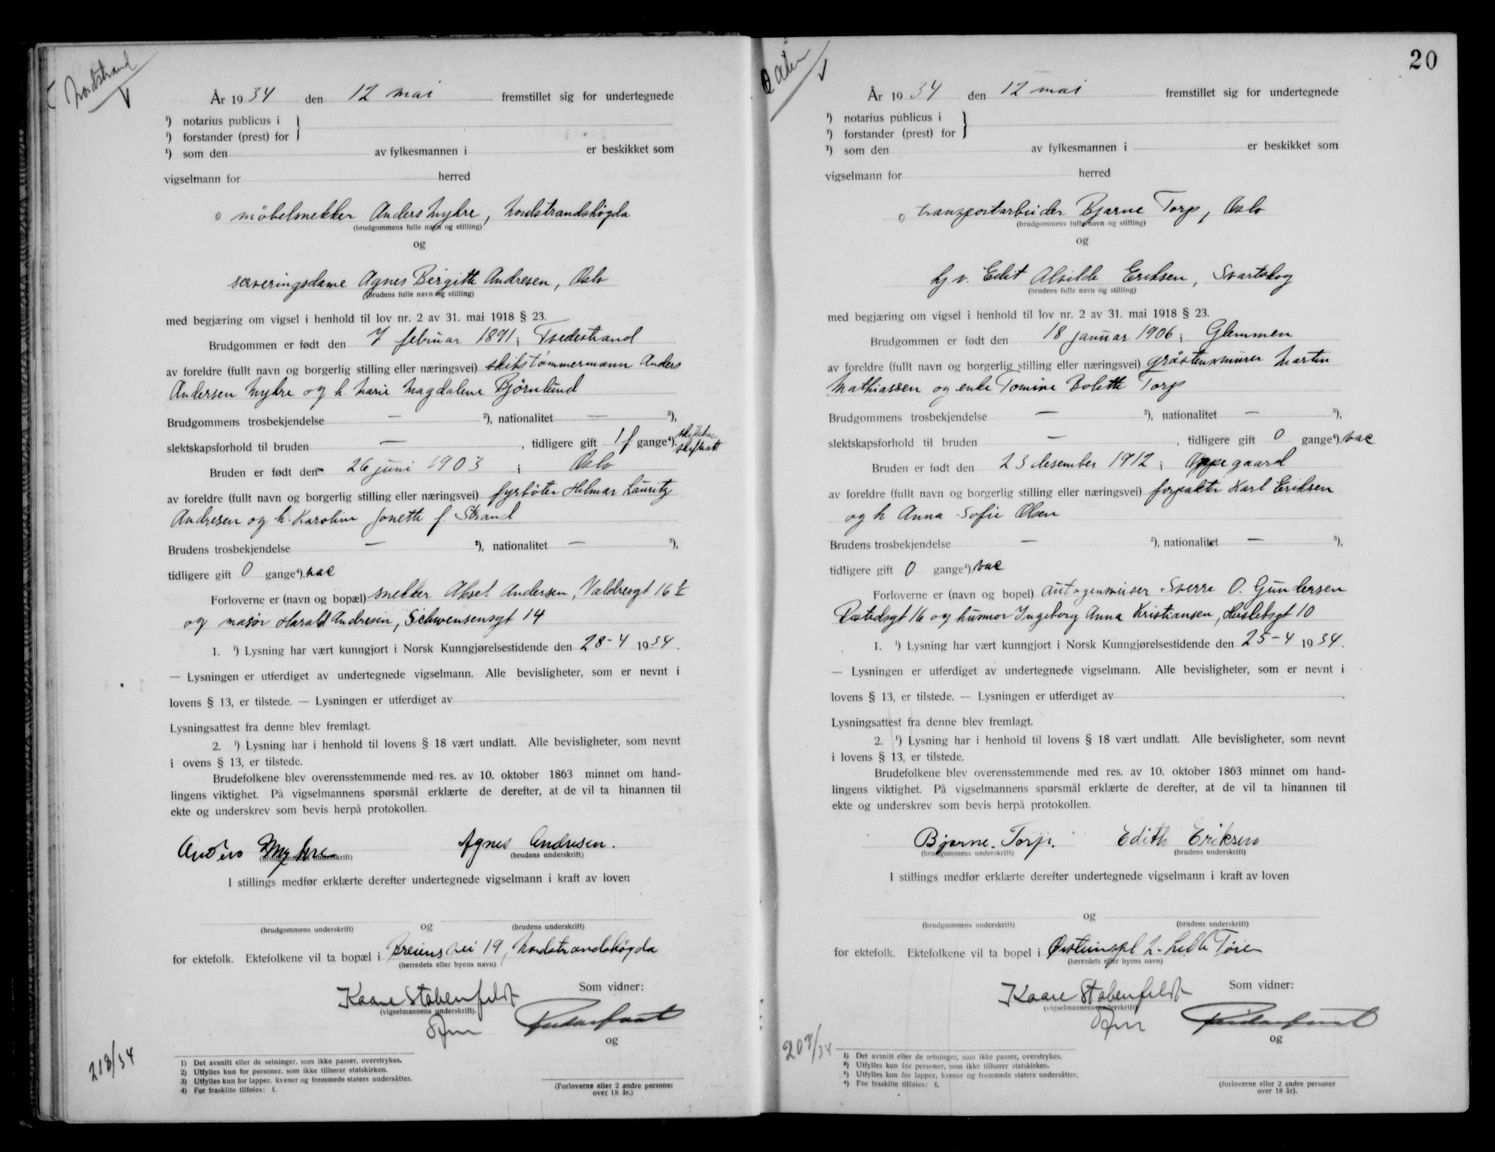 Nordstrand
År 1934 den 12 mai fremstillet sig for undertegnede
¹) notarius publicus i
¹) forstander (prest) for
¹) som den av fylkesmannen i er beskikket som
vigselmann for herred
møbelsnekker Anders Myhre, Nordstrandshøgda
(brudgommens fulle navn og stilling)
og
serveringsdame Agnes Birgith Andresen, Oslo
(brudens fulle navn og stilling)
med begjæring om vigsel i henhold til lov nr. 2 av 31. mai 1918 § 23.
Brudgommen er født den 7 februar 1891 i Tvedestrand
av foreldre (fullt navn og borgerlig stilling eller næringsvei) skibstømmermann Anders
Andersen Myhre og h. Marie Magdalene Bjørnlund
Brudgommens trosbekjendelse — ²), nationalitet — ³),
slektskapsforhold til bruden — , tidligere gift 1 f gange⁴).
Bruden er født den 26 juni 1903 i Oslo
av foreldre (fullt navn og borgerlig stilling eller næringsvei) fyrbøter Hilmar Lauritz
Andresen og h. Karoline Jonette f. Strand
Brudens trosbekjendelse — ²), nationalitet — ³),
tidligere gift 0 gange⁴). vac
Forloverne er (navn og bopæl) snekker Aksel Andersen, Valdresgt 16
og Harald Andresen, Schwensensgt 14
1. ¹) Lysning har vært kunngjort i Norsk Kunngjørelsestidende den 28-4 1934.
— Lysningen er utferdiget av undertegnede vigselmann. Alle bevisligheter, som er nevnt i
lovens § 13, er tilstede. — Lysningen er utferdiget av
Lysningsattest fra denne blev fremlagt.
2. ¹) Lysning har i henhold til lovens § 18 vært undlatt. Alle bevisligheter, som nevnt
i ovens § 13, er tilstede.
Brudefolkene blev overensstemmende med res. av 10. oktober 1863 minnet om hand-
lingens viktighet. På vigselmannens spørsmål erklærte de derefter, at de vil ta hinannen til
ekte og underskrev som bevis herpå protokollen.
Anders Myhre Agnes Andresen.
(brudgommens underskrift) (brudens underskrift)
I stillings medfør erklærte derefter undertegnede vigselmann i kraft av loven
og
(brudgommens underskrift) (brudens underskrift)
for ektefolk. Ektefolkene vil ta bopæl i Breiens vei 19, Nordstrandshøgda
(herredets eller byens navn)
Kaare Stabenfeldt Som vidner:
(vigselmannens underskrift).
og
218/34
1) Det avsnitt eller de setninger, som ikke passer, overstrykes.
2) Utfylles kun for personer, som ikke tilhører statskirken.
3) Utfylles kun for lapper, kvener og fremmede staters undersåtter.
4) For fraskilte tilføies: f.
(Forloverne eller 2 andre personer
over 18 år.)
20
År 1934 den 12 mai fremstillet sig for undertegnede
¹) notarius publicus i
¹) forstander (prest) for
¹) som den av fylkesmannen i er beskikket som
vigselmann for herred
transportarbeider Bjarne Torp, Oslo
(brudgommens fulle navn og stilling)
og
hj.v. Edit Alvilde Eriksen, Svartskog
(brudens fulle navn og stilling)
med begjæring om vigsel i henhold til lov nr. 2 av 31. mai 1918 § 23.
Brudgommen er født den 18 januar 1906 i Glemmen
av foreldre (fullt navn og borgerlig stilling eller næringsvei) gråstensmurer Martin
Mathiassen og enke Tomine Bolette Torp
Brudgommens trosbekjendelse — ²), nationalitet — ³),
slektskapsforhold til bruden — , tidligere gift 0 gange⁴). vac
Bruden er født den 23 desember 1912 i Oppegaard
av foreldre (fullt navn og borgerlig stilling eller næringsvei) forpakter Karl Eriksen
og h Anna Sofie Olsen
Brudens trosbekjendelse — ²), nationalitet — ³),
tidligere gift 0 gange⁴). vac
Forloverne er (navn og bopel) Sverre O. Gundersen
16 og husmor Ingeborg Anna Kristiansen, Heslebsgt 10
1. ¹) Lysning har vært kunngjort i Norsk Kunngjørelsestidende den 25-4 1934.
— Lysningen er utferdiget av undertegnede vigselmann. Alle bevisligheter, som er nevnt i
lovens § 13, er tilstede. — Lysningen er utferdiget av
Lysningsattest fra denne blev fremlagt.
2. ¹) Lysning har i henhold til lovens § 18 vært undlatt. Alle bevisligheter, som nevnt
i lovens § 13, er tilstede.
Brudefolkene blev overensstemmende med res. av 10. oktober 1863 minnet om hand-
lingens viktighet. På vigselmannens spørsmål erklærte de derefter, at de vil ta hinannen til
ekte og underskrev som bevis herpå protokollen.
Bjarne Torp. Edith Eriksen
(brudgommens underskrift) (brudens underskrift)
I stillings medfør erklærte derefter undertegnede vigselmann i kraft av loven
og
(brudgommens underskrift) (brudens underskrift)
for ektefolk. Ektefolkene vil ta bopel i
(herredets eller byens navn)
Kaare Stabenfeldt Som vidner:
(vigselmannens underskrift)
og
207/34
1) Det avsnitt eller de setninger, som ikke passer, overstrykes.
2) Utfylles kun for personer, som ikke tilhører statskirken.
3) Utfylles kun for lapper, kvener og fremmede staters undersåtter.
4) For fraskilte tilføies: f.
(forloverne eller 2 andre personer
over 18 år).